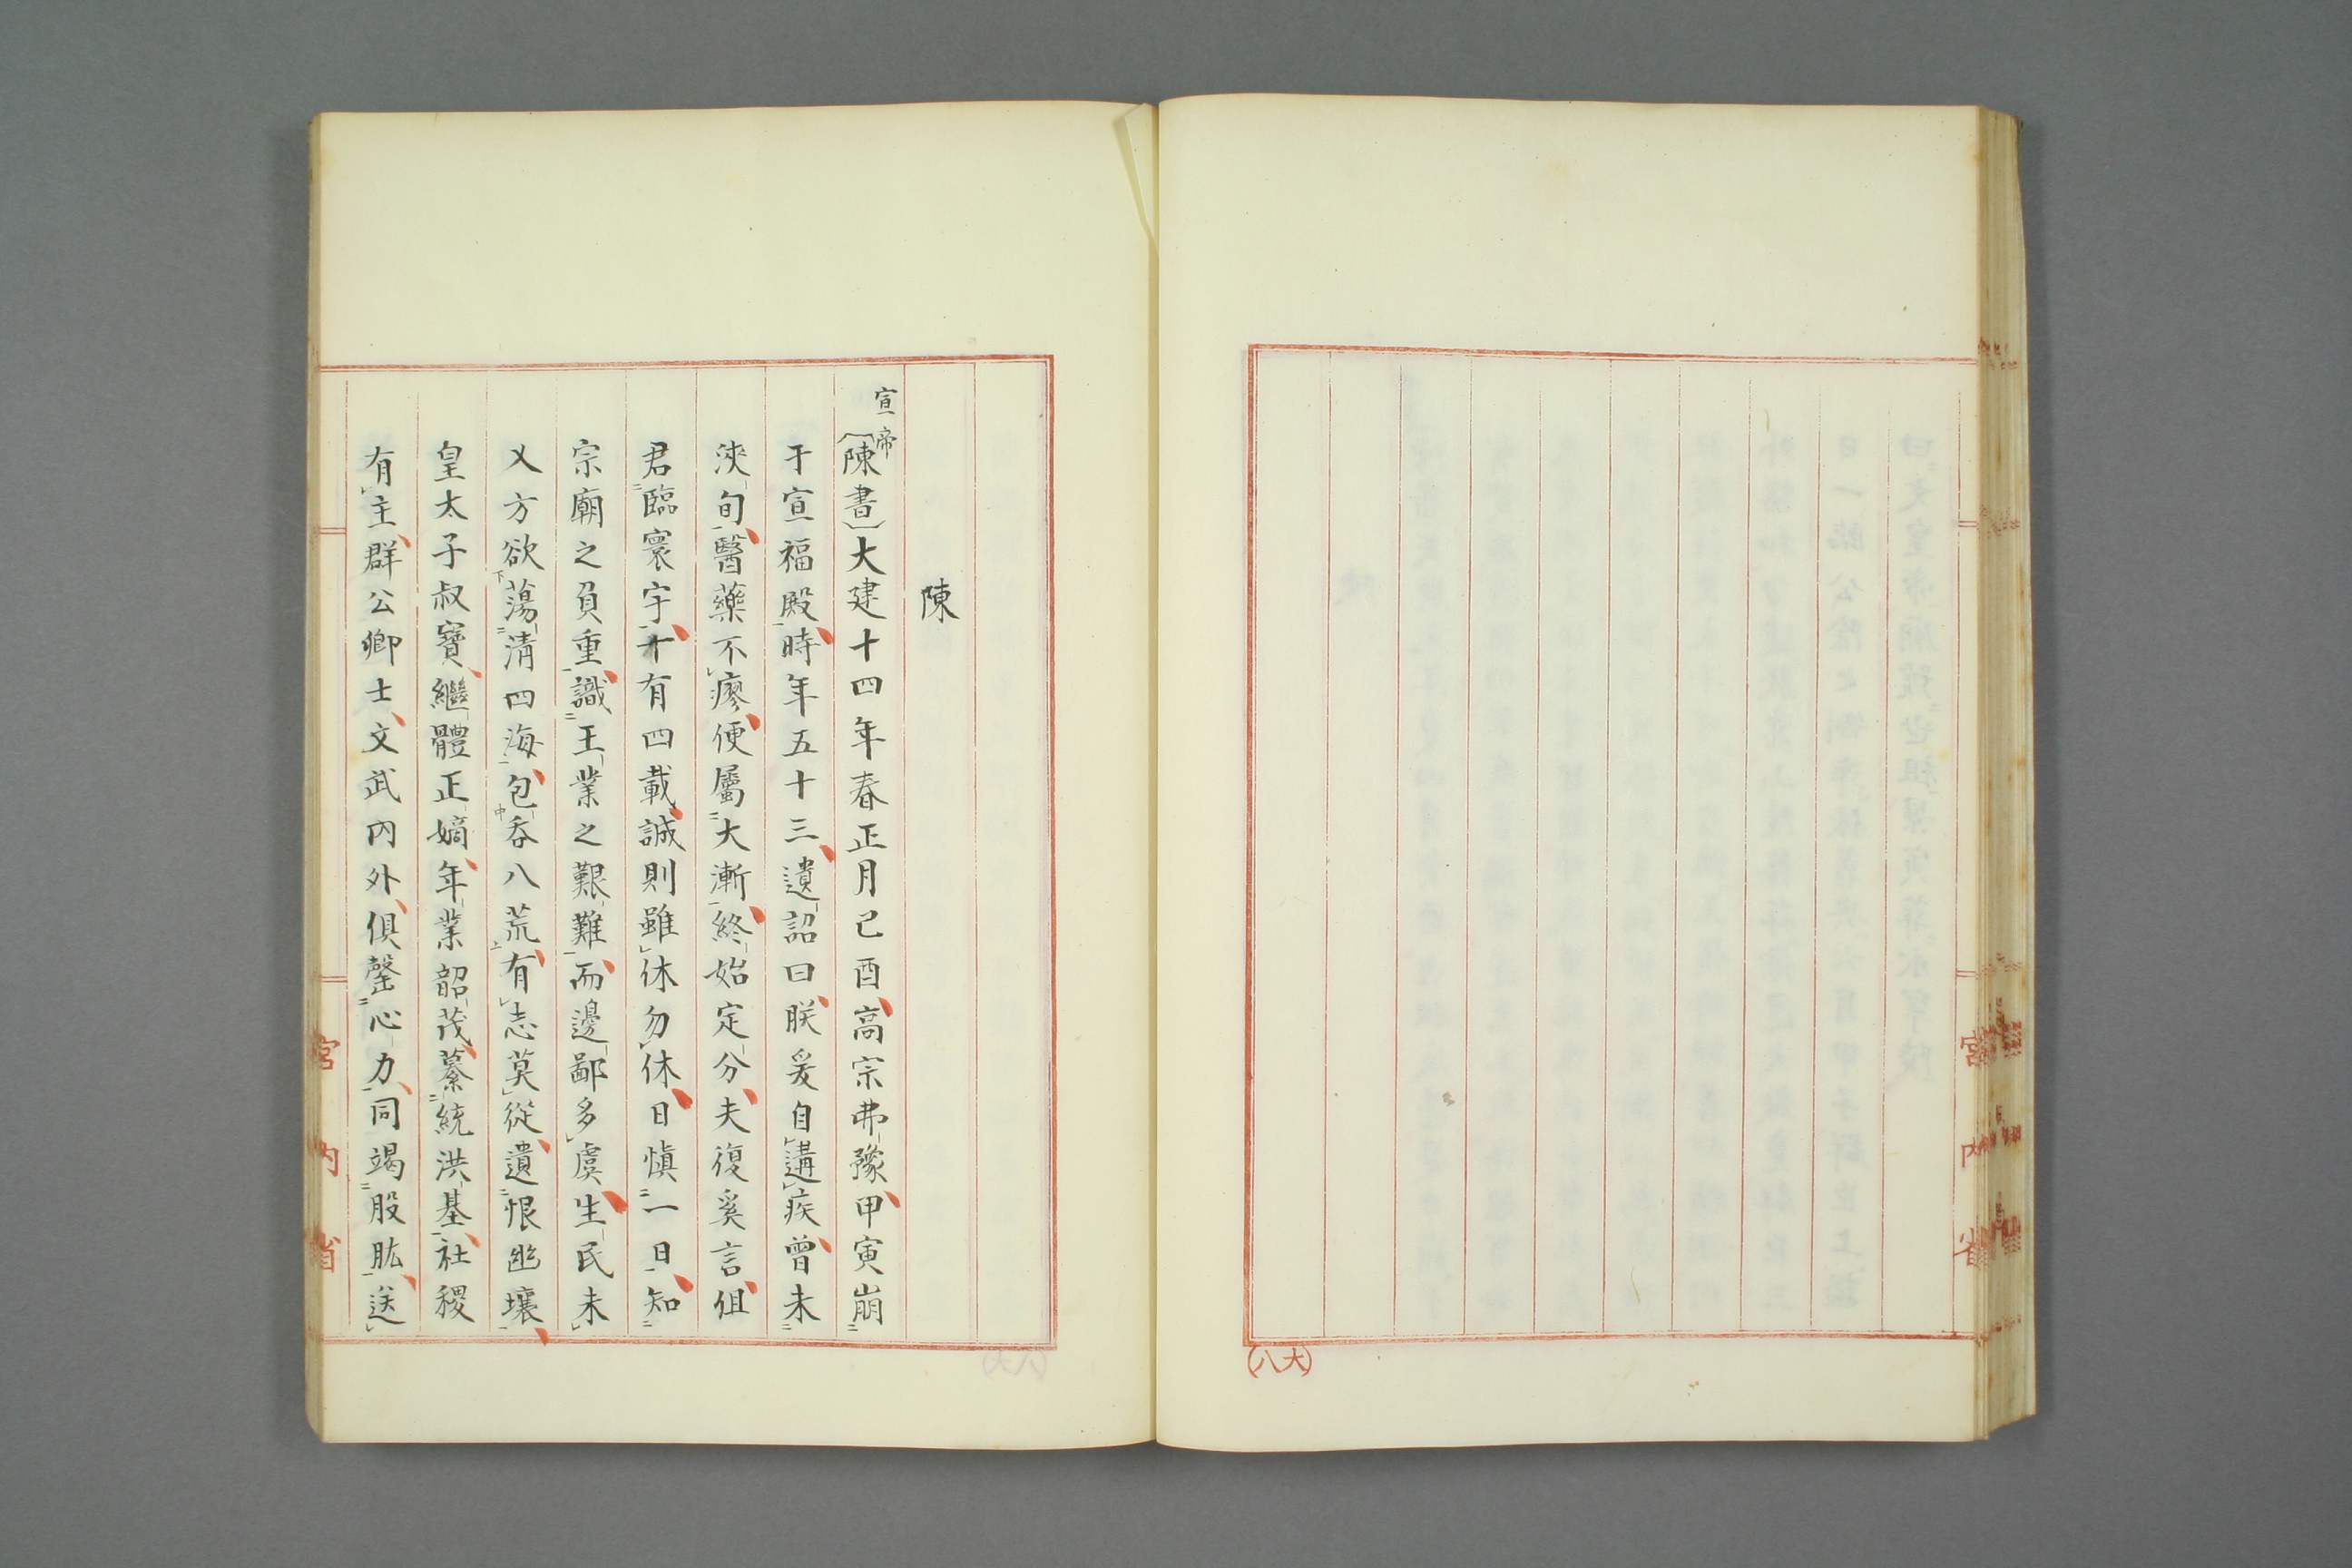 宮内省
(大八)
陳
宣帝
〔陳書〕大建十四年春正月己酉高宗弗豫甲寅崩
于宣福殿時年五十三遺詔曰朕爰自遘疾曾未
浹旬醫藥不瘳便屬大漸終始定分夫復奚言但
君臨寰宇十有四載誠則雖休勿休日慎一日知
宗廟之負重識王業之艱難而邊鄙多虞生民未
乂方欲蕩清四海包呑八荒有志莫從遺恨幽壤
皇太子叔寶繼體正嫡年業韶茂纂統洪基社稷
有主群公卿士文武内外俱罄心力同竭股肱送
宮内省